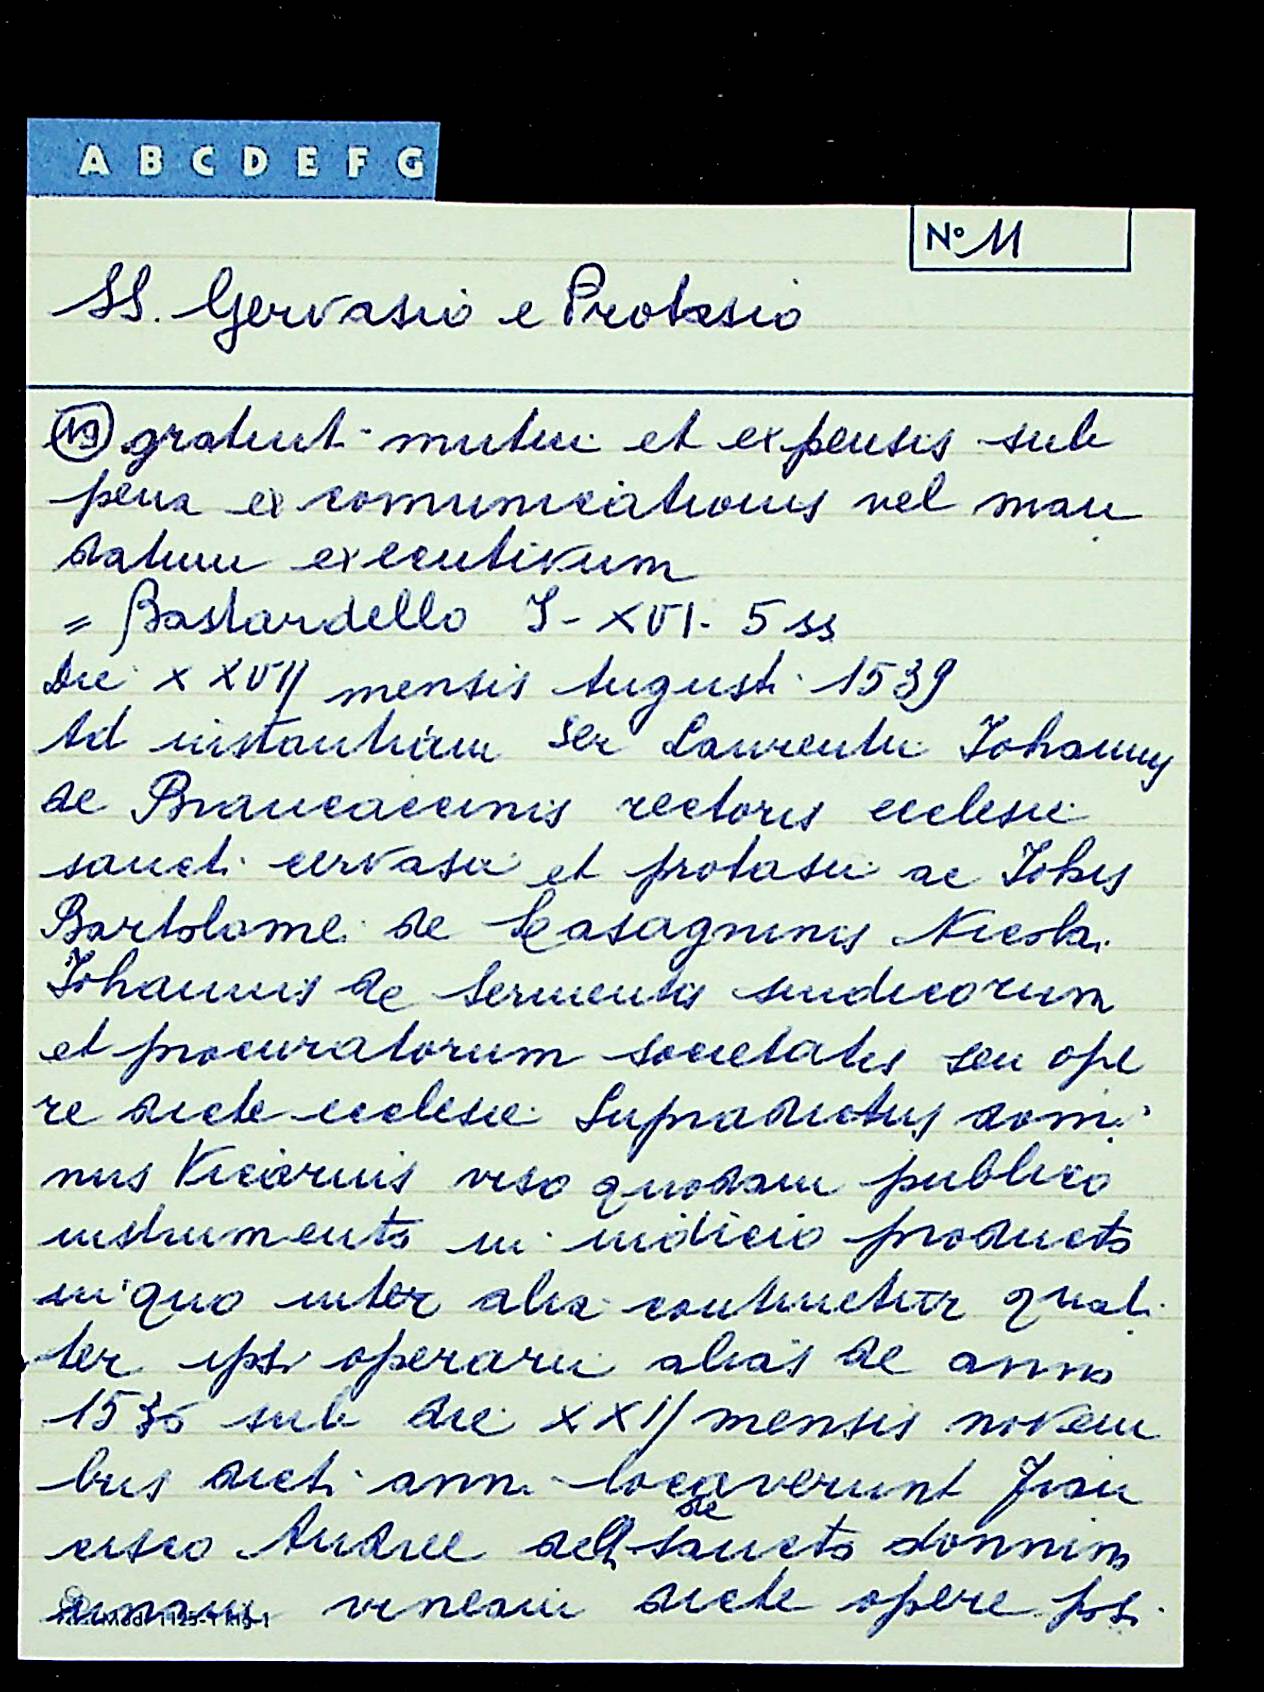 A B C D E F G
N° 11
SS. Gervasio e Protasio
gratiut. mutui et expensis sub
pena excomunicationis vel man
datum executivum
= Bastardello I - XVI. 5 ss
Die XXVII mensis Augusti 1539
Ad instantiam Ser Laurentii Johannis
de Brancaccinis rectoris ecclesie
sancti cervasii et protasii ac Johis
Bartolomei de Casagninis Nicolai
Johannis de Sermentis sindicorum
et procuratorum societatis seu ope
re dicte ecclesie Supradictus domi
nus Vicarius viso quodam publico
instrumento in iudicio producto
in quo inter alia continetur quali
ter ipsi operarii alias de anno
sub die XXII mensis novem
bris dicti anni locaverunt Fran
cisco Andree de sancto donnino
vineam dicte opere posi